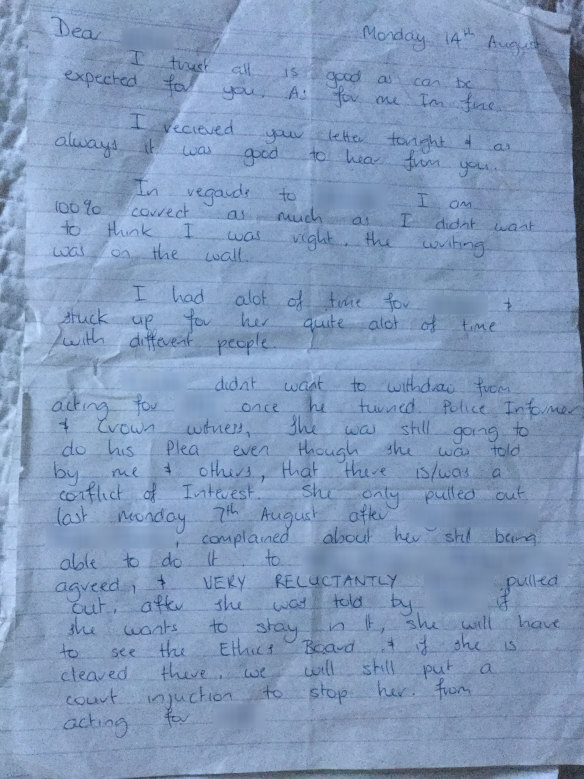 Dear
Monday 14th August
I trust all is good as can be
expected for you. As for me Im fine.
I recieved your letter tonight & as
always it was good to hear from you.
In regards to I am
100% correct as much as I didnt want
to think I was right, the writing
was on the wall.
I had alot of time for &
stuck up for her quite alot of time
with different people
didnt want to withdraw from
acting for once he turned Police Informer
& Crown witness, She was still going to
do his Plea even though she was told
by me & others, that there is/was a
conflict of Interest. She only pulled out
last monday 7th August after
, complained about her still being
able to do it. to
agreed, & VERY RELUCTANTLY pulled
out, after she was told by if
she wants to stay in it, she will have
to see the Ethics Board & if she is
cleared there, we will still put a
court injuction to stop her from
acting for